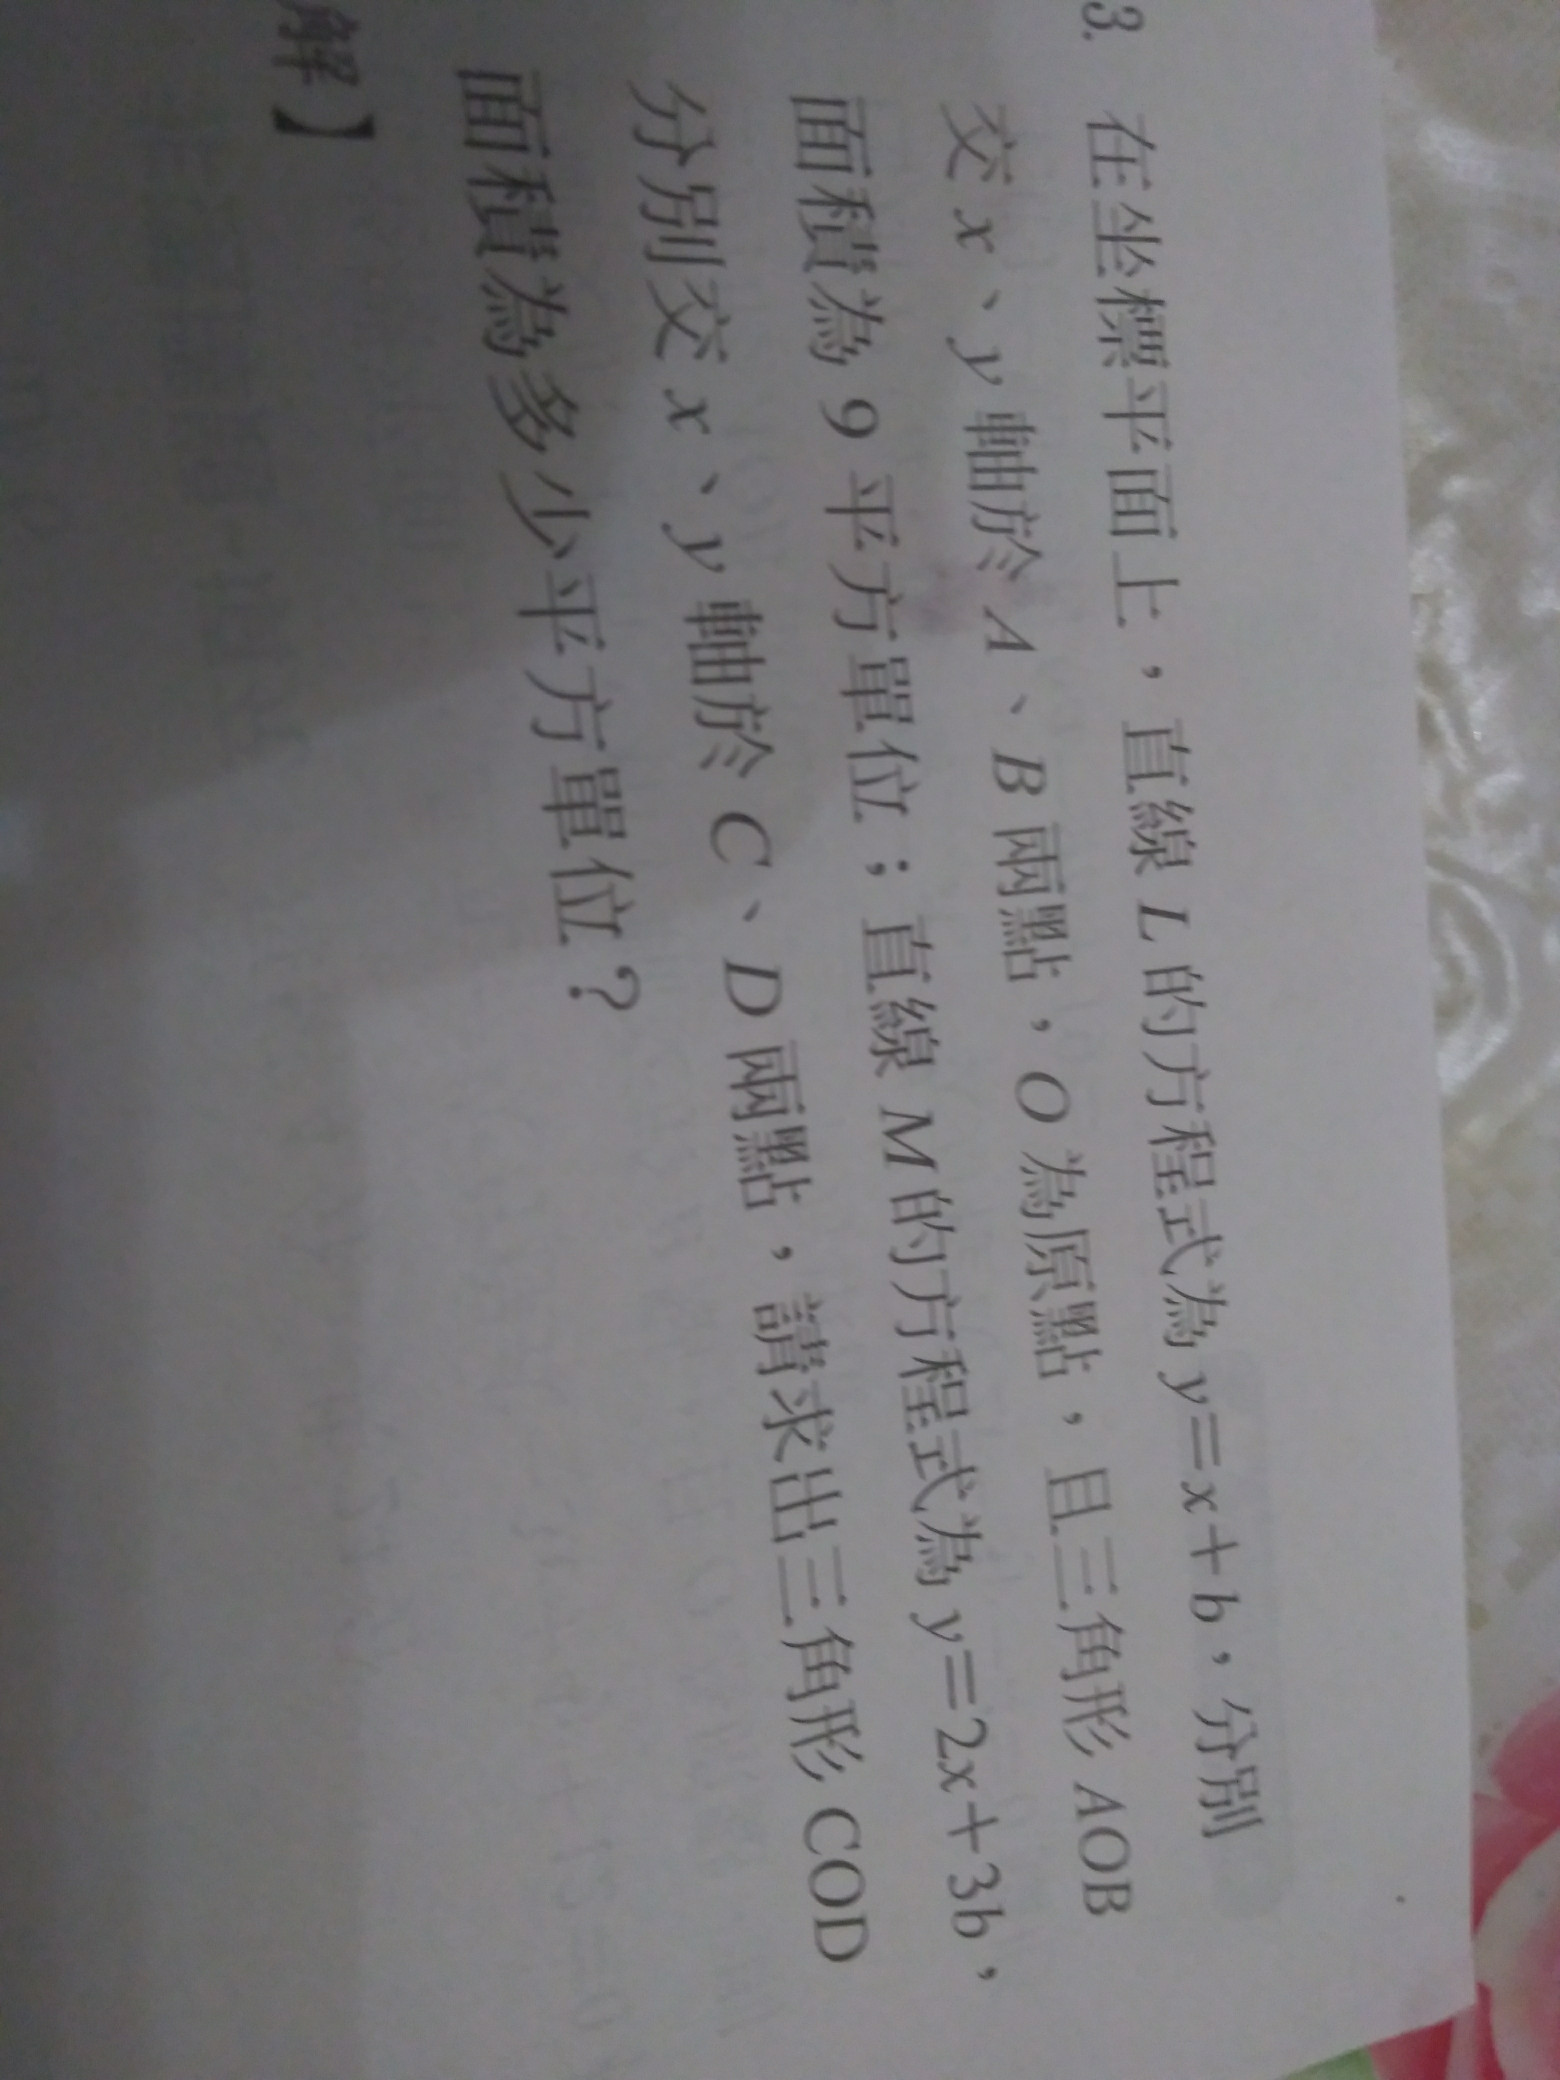 3. 在坐標平面上，直線 L 的方程式為 y=x+b，分別
交 x、y 軸於 A、B 兩點，O 為原點，且三角形 AOB
面積為 9 平方單位；直線 M 的方程式為 y=2x+3b，
分別交 x、y 軸於 C、D 兩點，請求出三角形 COD
面積為多少平方單位？
解】